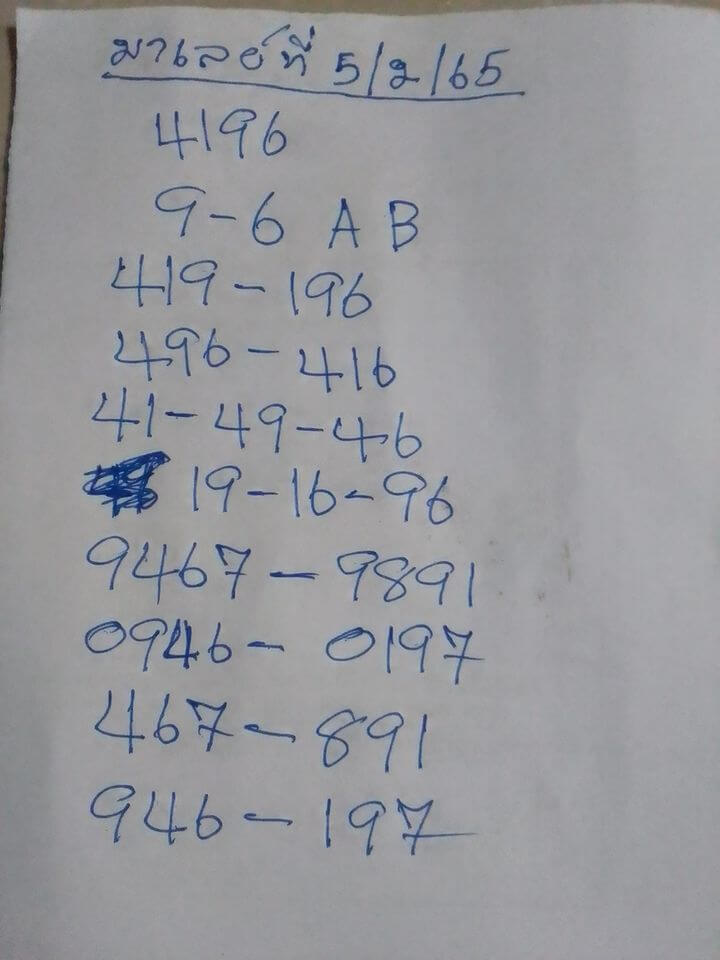 มาเลย์ที่ 5/2/65
4196
9-6 A B
419-196
496-416
41-49-46
19-16-96
9467-9891
0946-0197
467-891
946-197